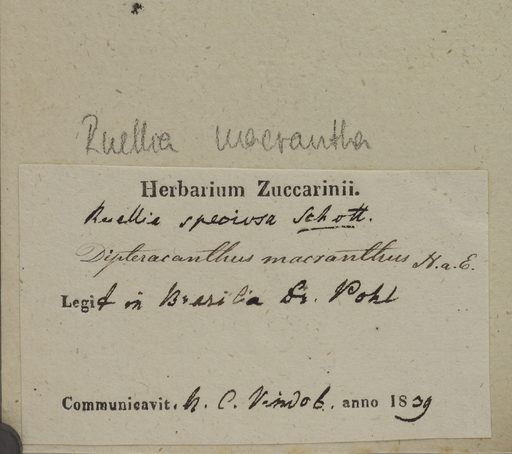 Ruellia macrantha
Herbarium Zuccarinii.
Ruellia speciosa Schott.
Dipteracanthus macranthus N.a.E.
Legit in Brasilia Dr. Pohl
Communicavit. M. C. Vindob. anno 1839